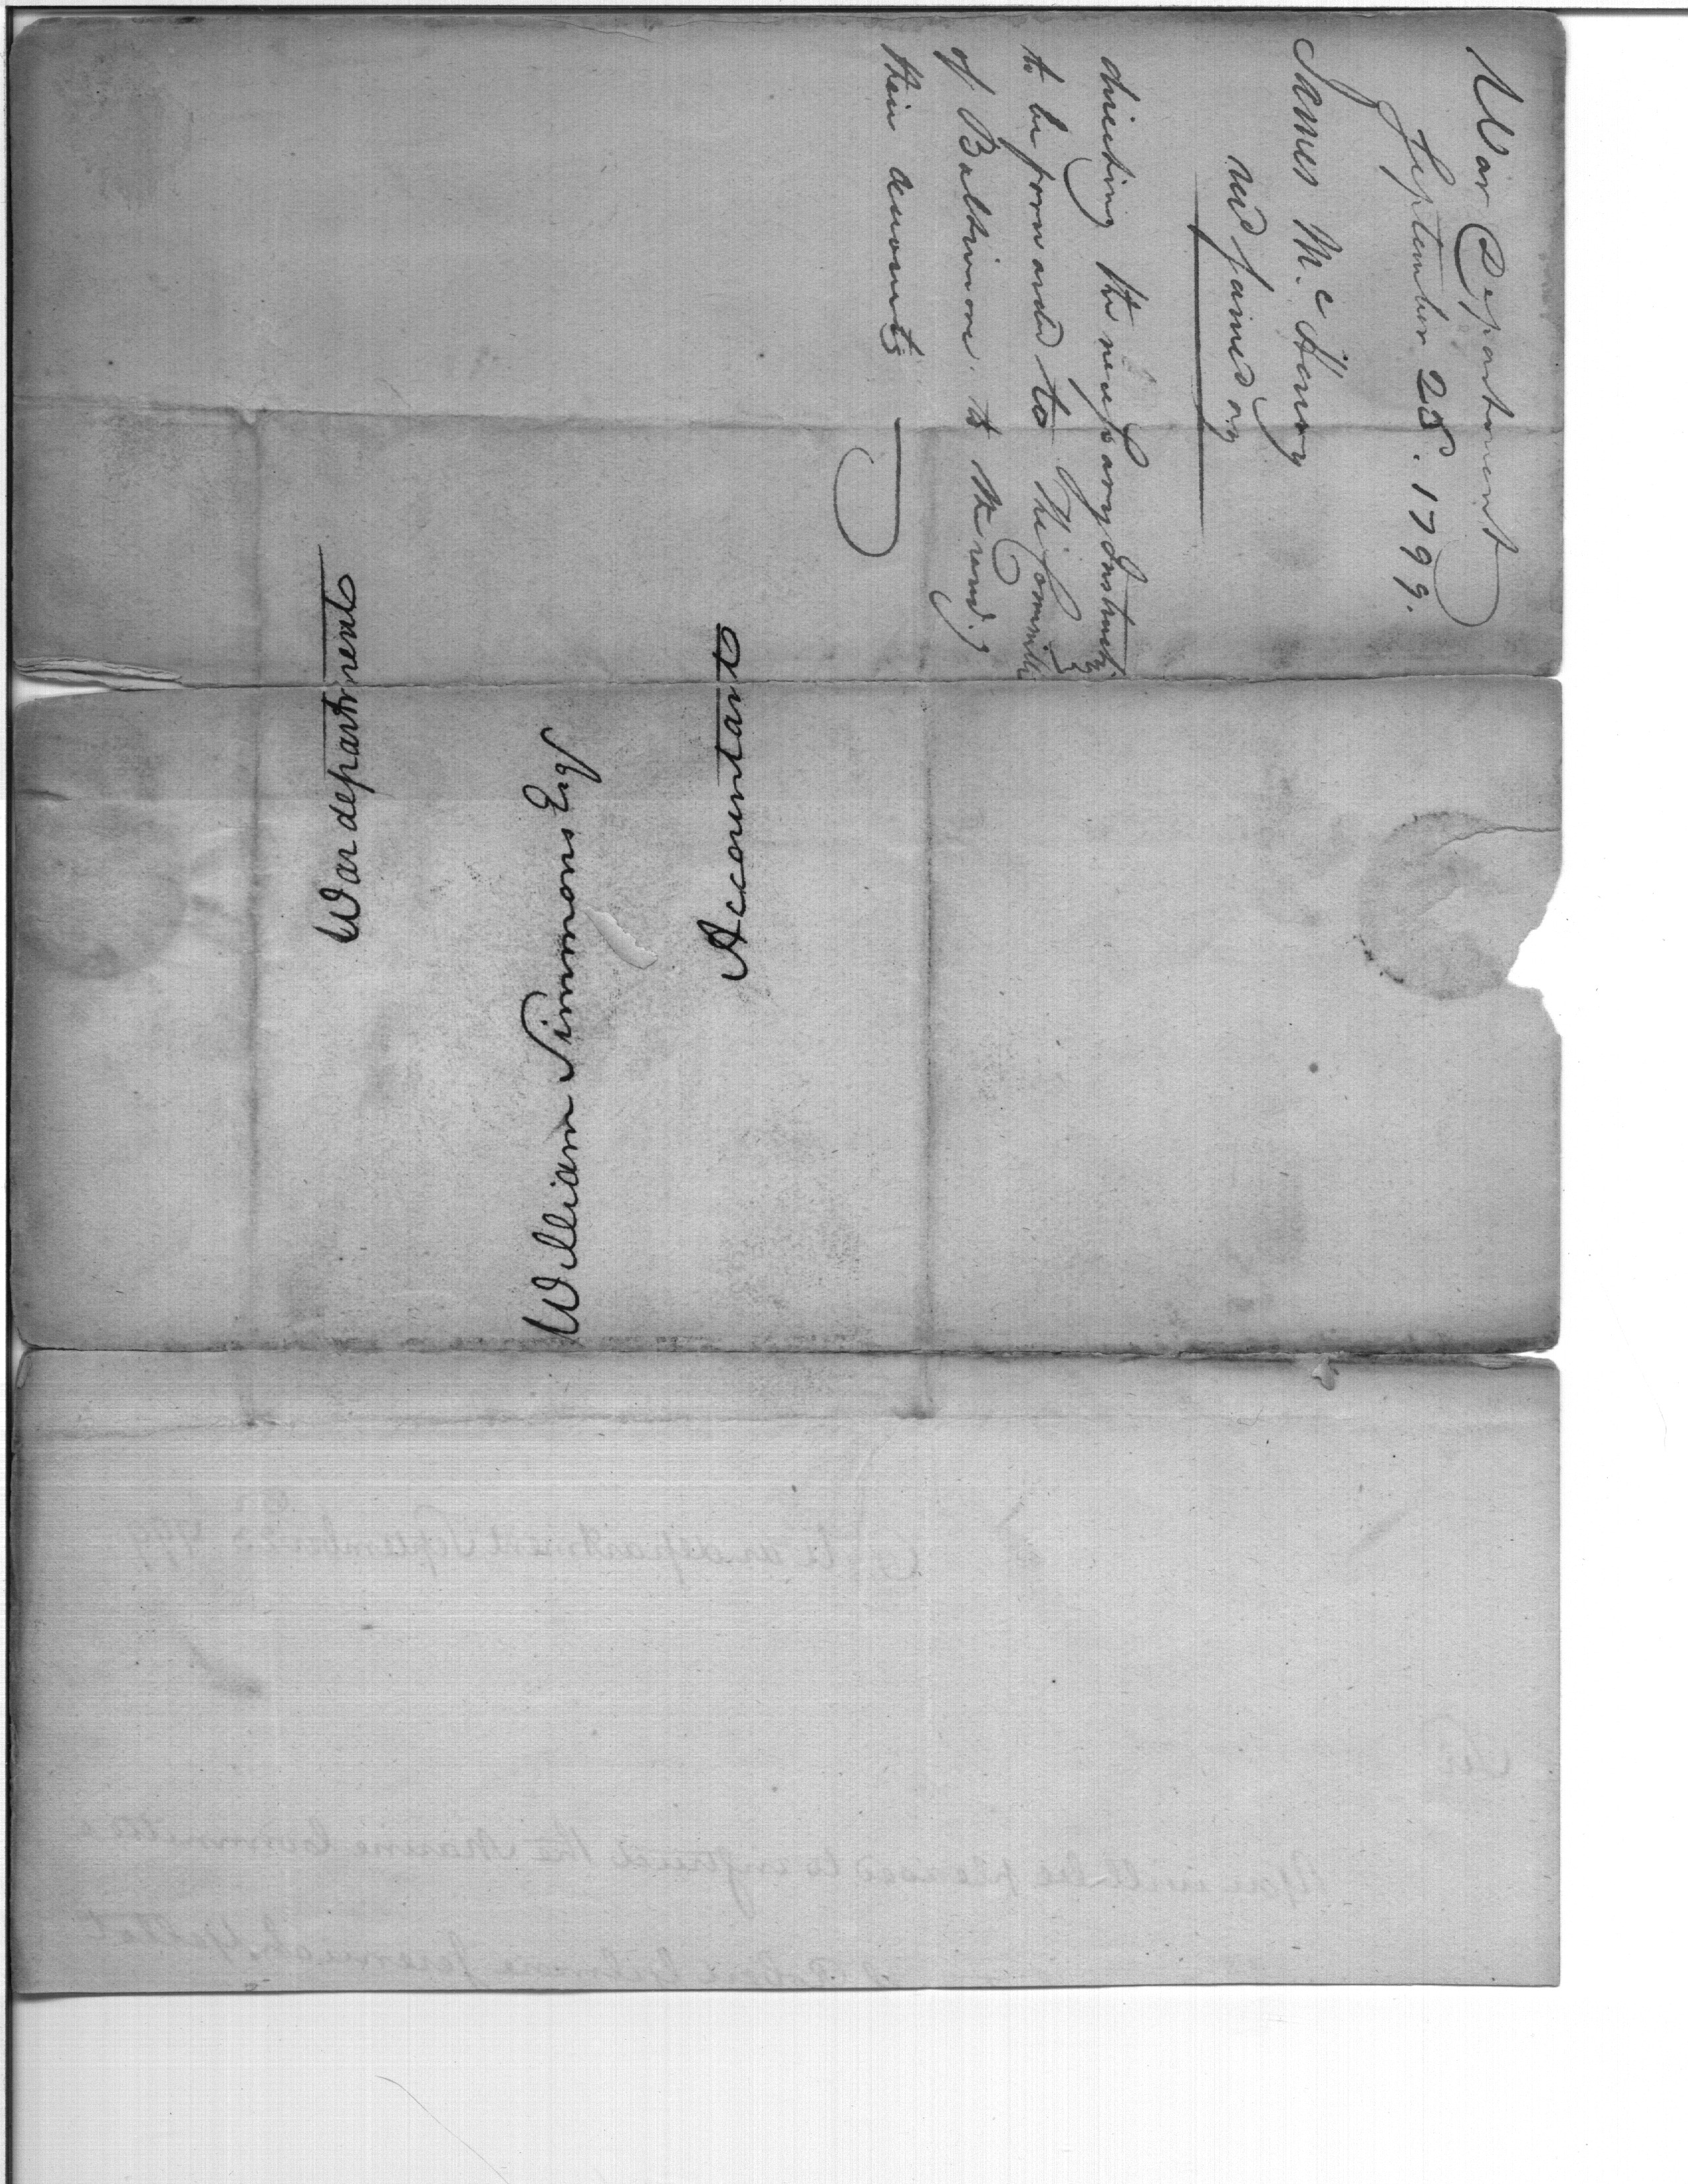 War Department
September 28. 1799.
James Mc.Henry
directing the necessary Instructions
to be forwarded to the Committee
of Baltimore to the rend.g
their accounts
War department
William Simmons Esq
Accountant
War department September 1799
Sir
You will be pleased to the Marine Committee
Robert Gilmore Jeremiah Yellot